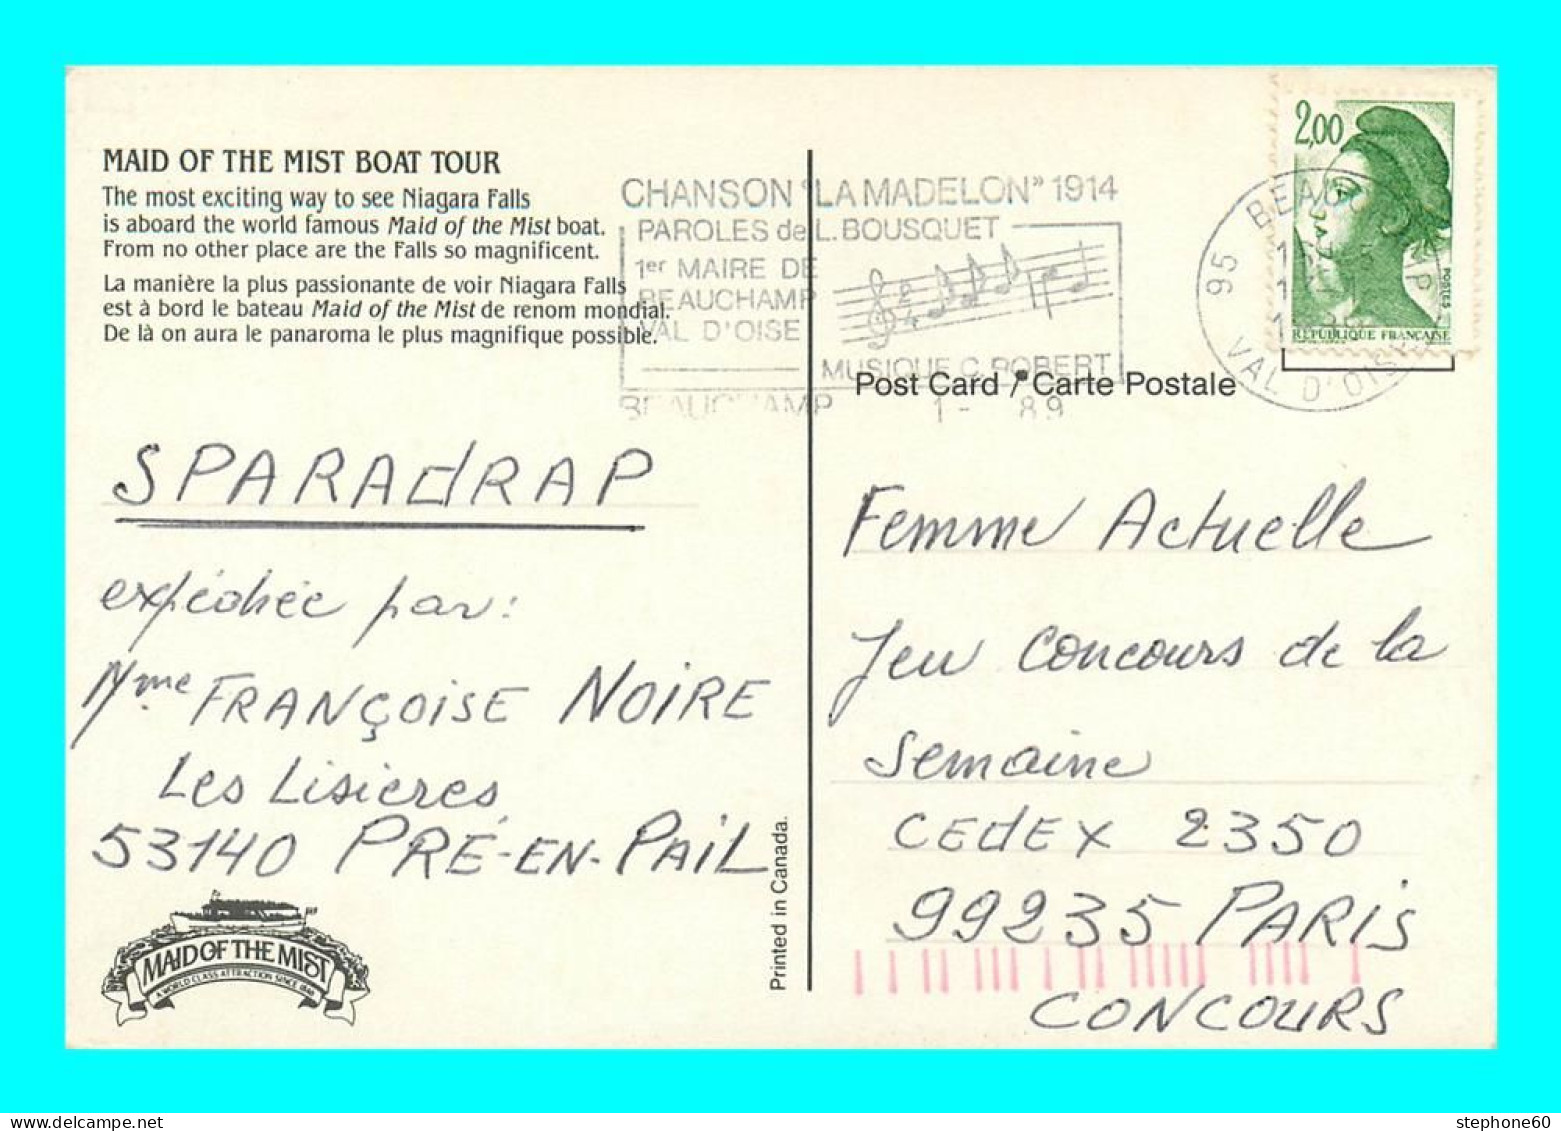 MAID OF THE MIST BOAT TOUR
The most exciting way to see Niagara Falls
is aboard the world famous Maid of the Mist boat.
From no other place are the Falls so magnificent.
La manière la plus passionante de voir Niagara Falls
est à bord le bateau Maid of the Mist de renom mondial.
De là on aura le panaroma le plus magnifique possible.
CHANSON "LA MADELON" 1914
PAROLES de L. BOUSQUET
1er MAIRE DE
BEAUCHAMP
VAL D'OISE
MUSIQUE C. ROBERT
BEAUCHAMP 1- 89
2,00
POSTES
RÉPUBLIQUE FRANÇAISE
95 VAL D'OISE
Post Card / Carte Postale
SPARAdRAP
expédiée par :
Mme FRANÇOISE NOIRE
Les Lisieres
53140 PRÉ-EN-PAIL
MAID OF THE MIST
A WORLD CLASS ATTRACTION SINCE 1846
Printed in Canada.
Femme Actuelle
Jeu Concours de la
Semaine
CEdEX 2350
99235 PARIS
CONCOURS
stephone60